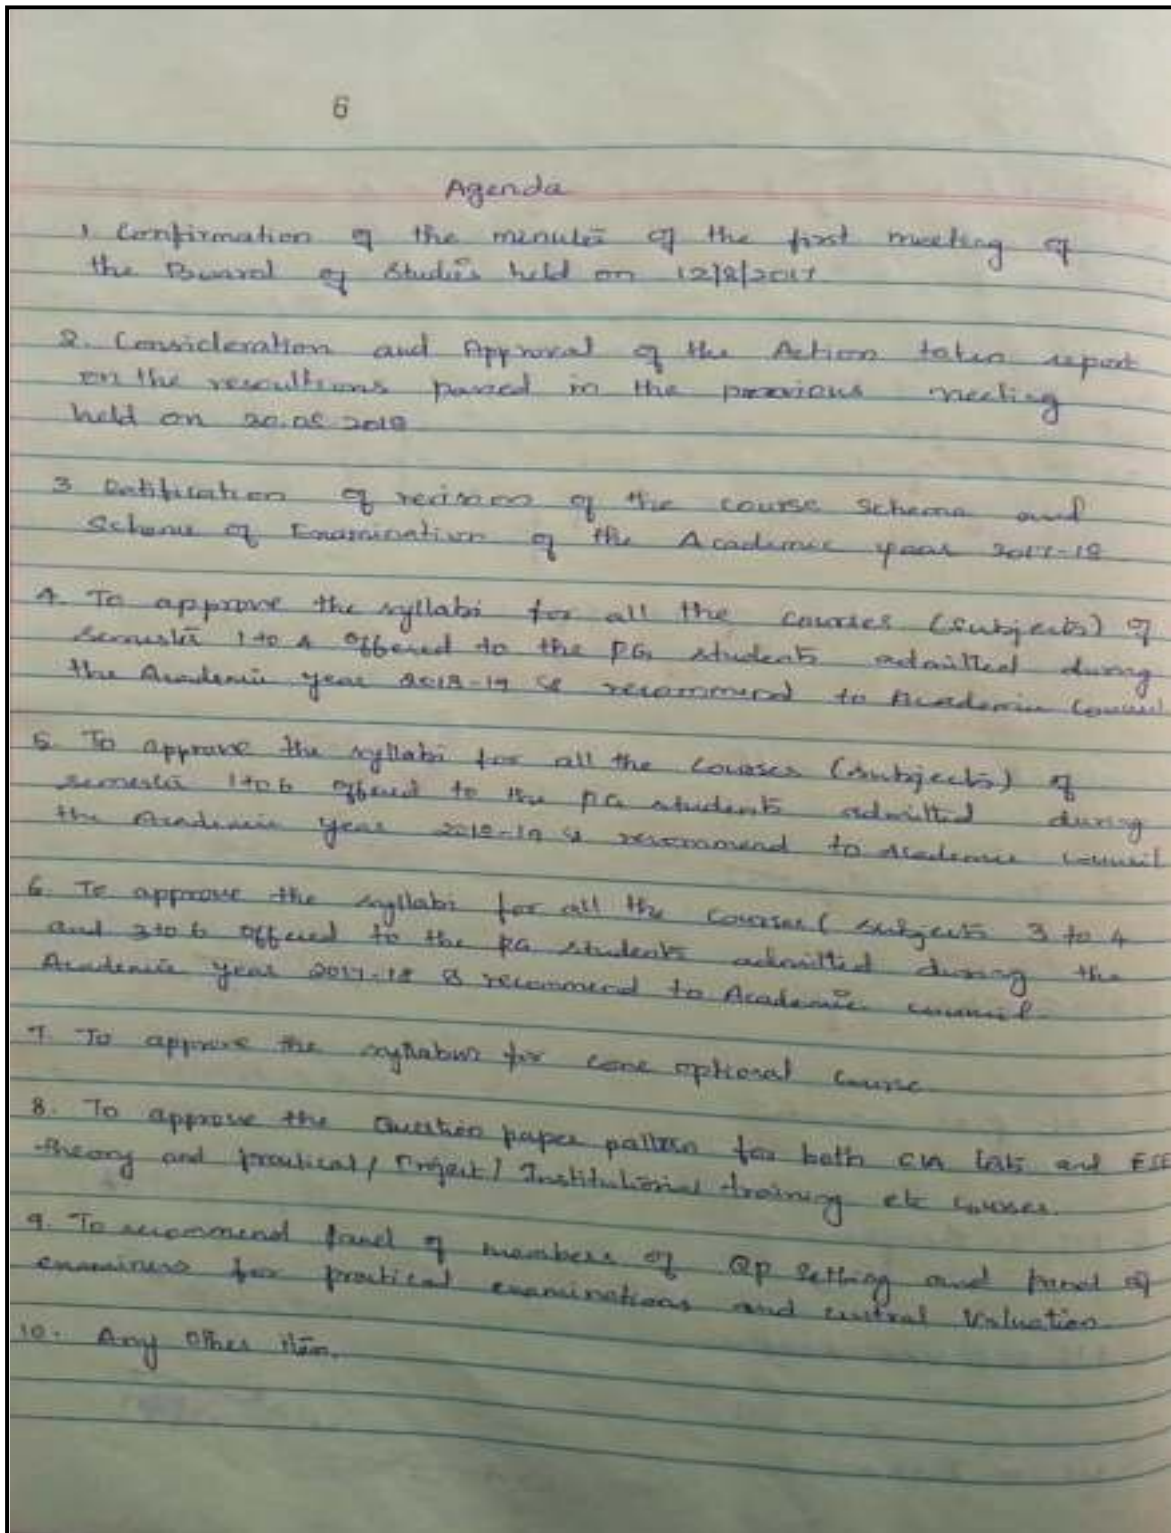 6
Agenda
1. Confirmation of the minutes of the first meeting of
the Board of Studies held on 12/8/2017
2. Consideration and Approval of the Action taken report
on the resolutions passed in the previous meeting
held on 2018
3. Ratification of revision of the course Scheme and
Scheme of Examination of the Academic year 2017-18
4. To approve the syllabi for all the courses (Subjects) of
semester 1 to 4 offered to the PG students admitted during
the Academic year 2018-19 & recommend to Academic Council
5. To approve the syllabi for all the courses (subjects) of
semester 1 to 6 offered to the PG students admitted during
the Academic Year 2018-19 & recommend to Academic Council
6. To approve the syllabi for all the courses ( subjects 3 to 4
and 3 to 6 offered to the PG students admitted during the
Academic year 2017-18 & recommend to Academic council.
7. To approve the syllabus for core optional course
8. To approve the Question paper pattern for both CIA and ESE
theory and practical / Project / Institutional training etc courses.
9. To recommend panel of members of QP Setting and panel of
examiners for practical examinations and central Valuation.
10. Any other item.